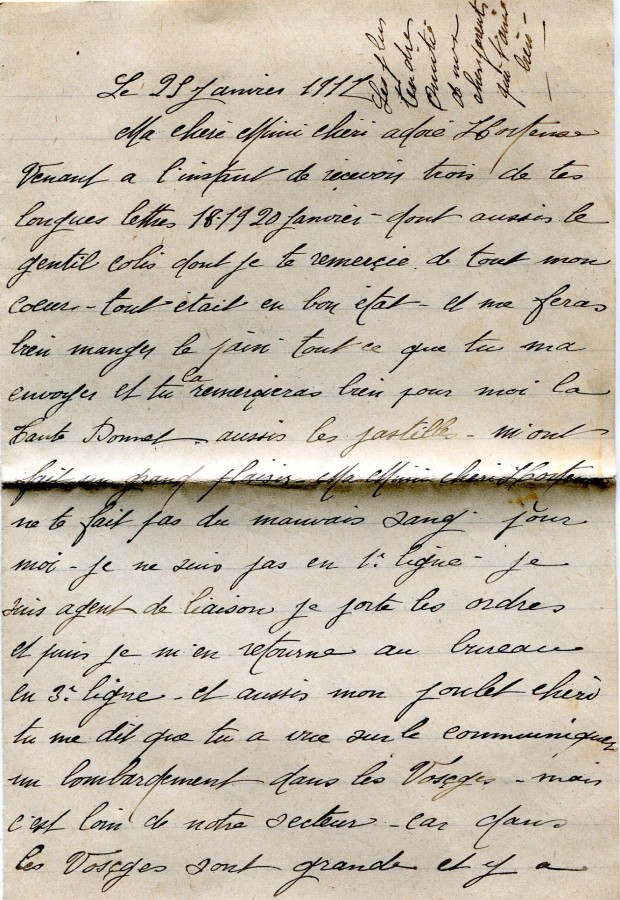 Les plus
tendre
amitié
a nos
changements
que j'aime
bien -
Le 25 Janvier 1917
Ma chéri Mimi chéri adoré Hortense
Venant a l'instant de recevoir trois de tes
longues lettres 18.19 20 janvier - dont aussis le
gentil colis dont je te remerçie de tout mon
coeur - tout était en bon état - et me feras
bien manger le pain tout ce que tu ma
envoyer et tu la remerçieras bien pour moi la
Tante Bonnet - aussis les pastilles - m'ont
fait un grand plaisir - Ma Mimi chéri Hortense
ne te fait pas du mauvais sang - pour
moi - je ne suis pas en 1e ligne - je
suis agent de liaison je porte les ordres
et puis je m'en retourne au bureau
en 3e ligne - et aussis mon poulet chéri
tu me dit que tu a vue sur le communiquer
un bombardement dans les Vosçges - mais
c'est loin de notre secteur - car dans
les Vosçges sont grande et y a